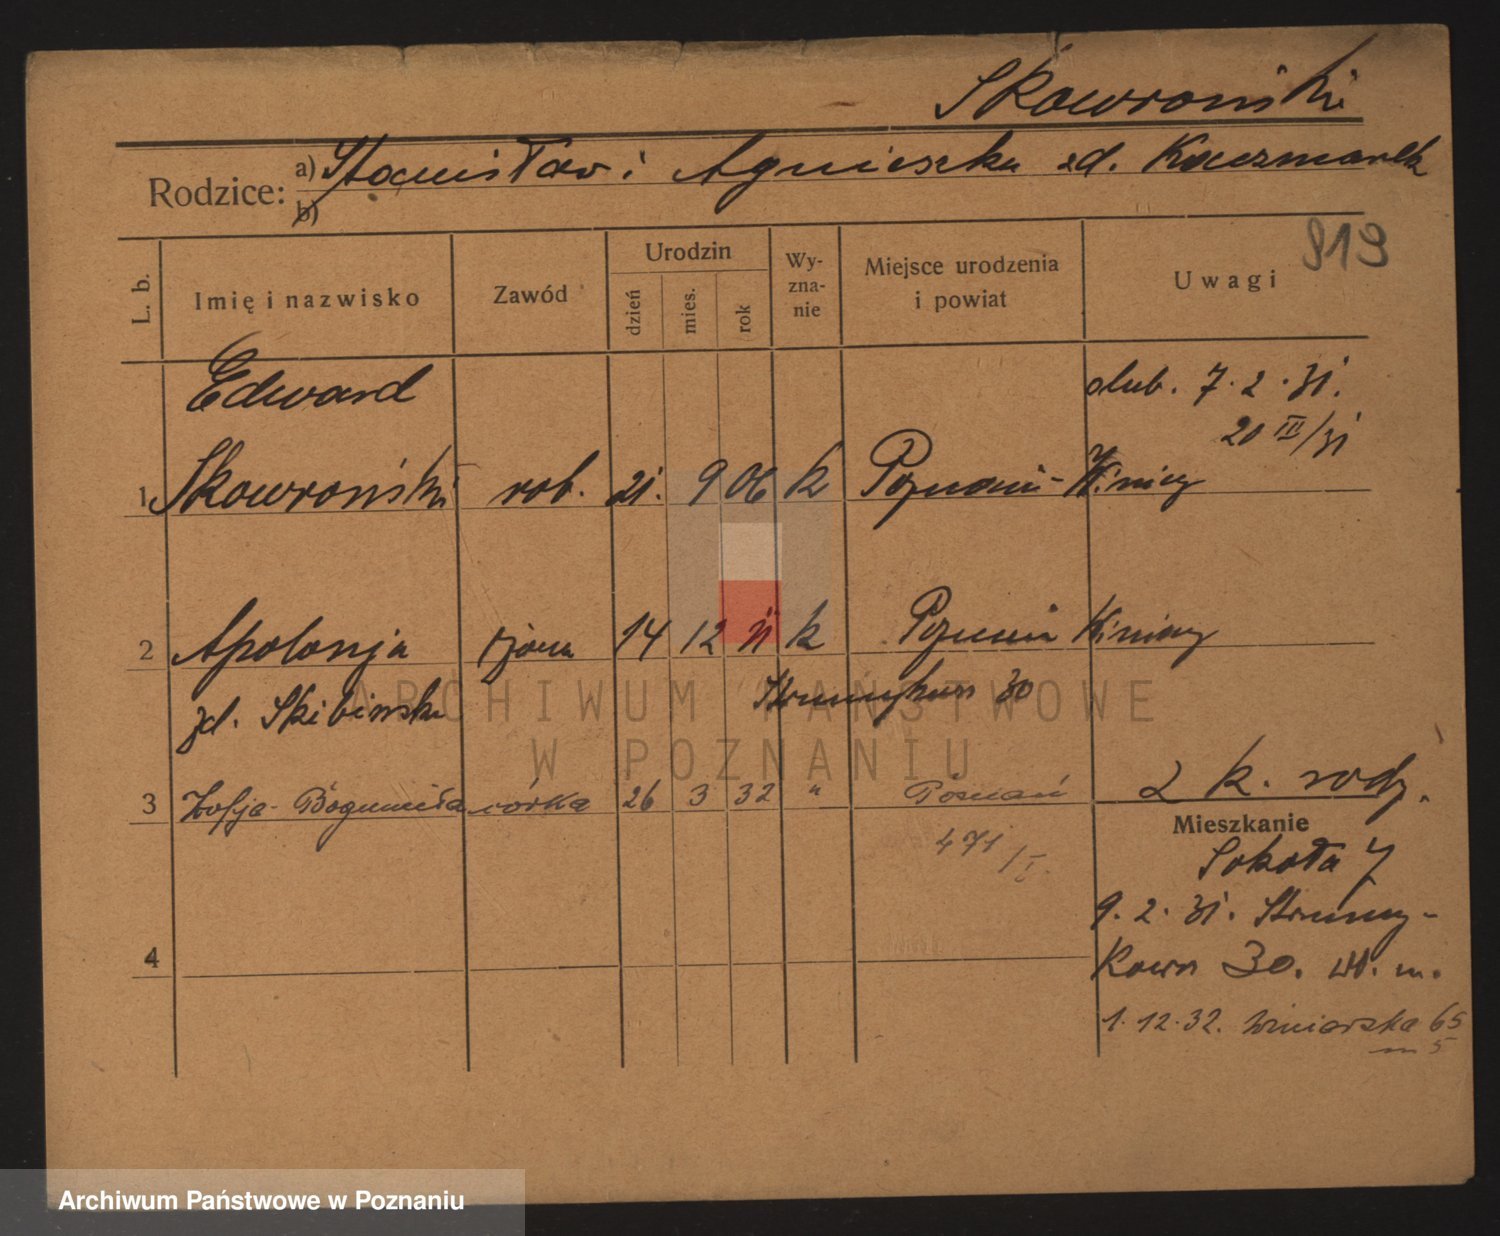 Skowroński
Rodzice: a) Stanisław i Agnieszka zd. Kaczmarek
b)
819
L. b.
Imię i nazwisko
Zawód
Urodzin
dzień
mies.
rok
Wy-
zna-
nie
Miejsce urodzenia
i powiat
Uwagi
Edward
ślub. 7.2.31.
20 III/31
1 Skowroński rob. 21. 9 06 k Poznań - Winiary
2 Apolonja żona 14 12 11 k Poznań Winiary
zd. Skibińska Strumykowa 30
3 Zofja-Bogumiła córka 26 3 32 " Poznań
2 k. rodz.
471/I.
Mieszkanie
Sokoła 7
9.2.31. Strumy-
kowa 30. m.
4
1.12.32. Winiarska 65
m 5
ARCHIWUM PAŃSTWOWE
W POZNANIU
Archiwum Państwowe w Poznaniu